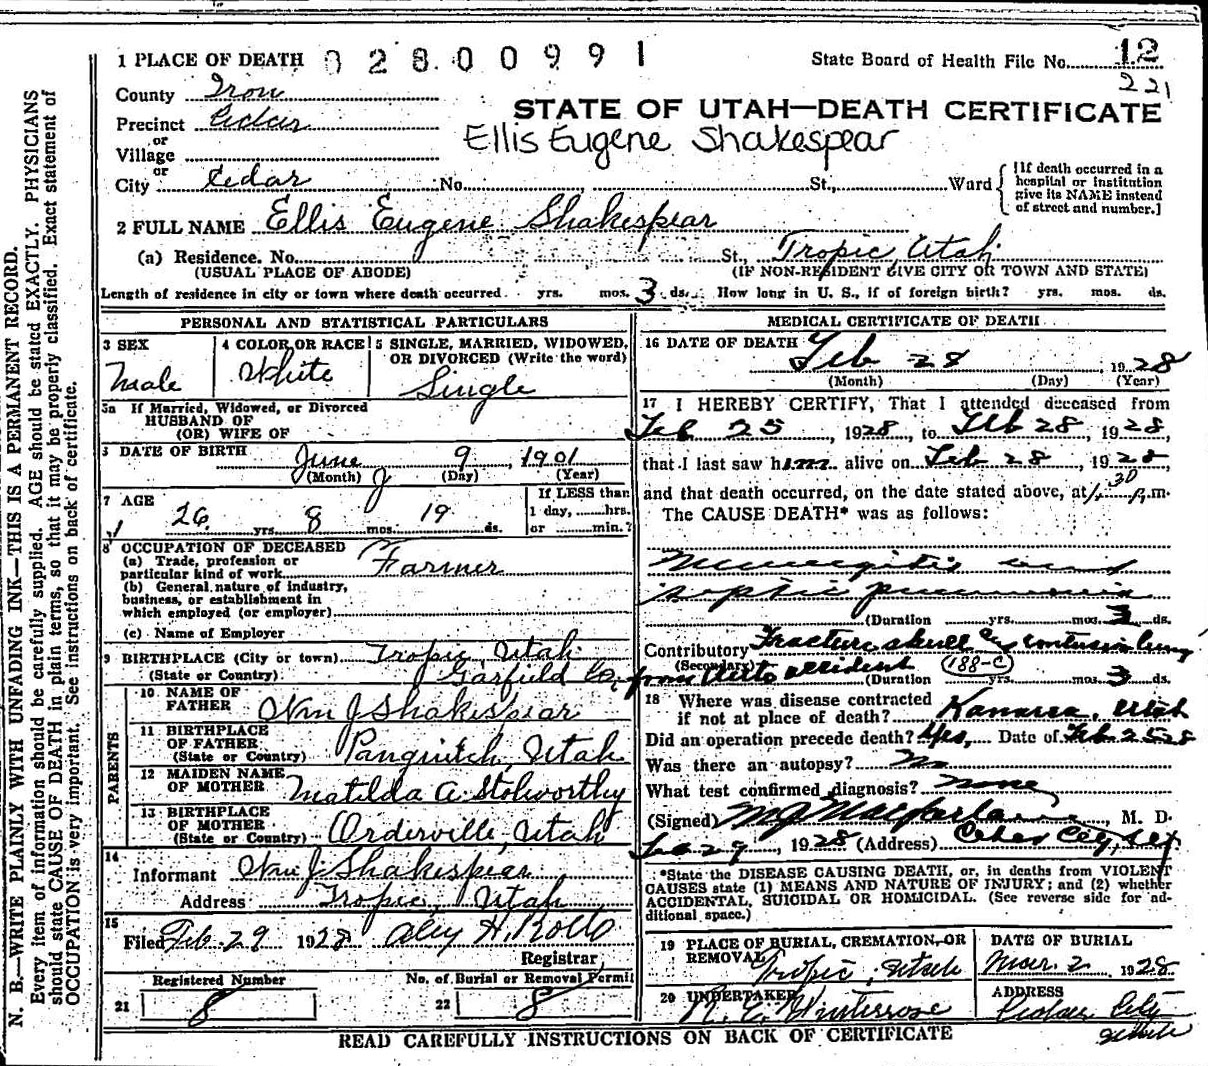 1 PLACE OF DEATH 0 2 8 0 0 9 9 1
State Board of Health File No. 12
221
County Iron
STATE OF UTAH—DEATH CERTIFICATE
Precinct Cedar
Ellis Eugene Shakespear
or
Village
or
City Cedar No. St., Ward
[If death occurred in a hospital or institution give its NAME instead of street and number.]
2 FULL NAME Ellis Eugene Shakespear
(a) Residence. No. St., Tropic, Utah
(USUAL PLACE OF ABODE) (IF NON-RESIDENT GIVE CITY OR TOWN AND STATE)
Length of residence in city or town where death occurred. yrs. mos. 3 ds. How long in U. S., if of foreign birth? yrs. mos. ds.
PERSONAL AND STATISTICAL PARTICULARS
3 SEX
Male
4 COLOR OR RACE
White
5 SINGLE, MARRIED, WIDOWED,
OR DIVORCED (Write the word)
Single
5a If Married, Widowed, or Divorced
HUSBAND OF
(OR) WIFE OF
6 DATE OF BIRTH June 9, 1901
(Month) (Day) (Year)
7 AGE
26 yrs. 8 mos. 19 ds.
If LESS than
1 day, hrs.
or min.?
8 OCCUPATION OF DECEASED
(a) Trade, profession or
particular kind of work Farmer
(b) General nature of industry,
business, or establishment in
which employed (or employer)
(c) Name of Employer
9 BIRTHPLACE (City or town) Tropic, Utah
(State or Country) Garfield Co.
PARENTS
10 NAME OF
FATHER Wm J Shakespear
11 BIRTHPLACE
OF FATHER
(State or Country) Panguitch, Utah
12 MAIDEN NAME
OF MOTHER Matilda A. Stolworthy
13 BIRTHPLACE
OF MOTHER
(State or Country) Orderville, Utah
14
Informant Wm J. Shakespear
Address Tropic, Utah
15
Filed Feb. 29 1928 Aley H. Rollo
Registrar,
Registered Number No. of Burial or Removal Permit
21 8 22 8
MEDICAL CERTIFICATE OF DEATH
16 DATE OF DEATH Feb 28 1928
(Month) (Day) (Year)
17 I HEREBY CERTIFY, That I attended deceased from
Feb 25, 1928, to Feb 28, 1928,
that I last saw him alive on Feb 28, 1928
and that death occurred, on the date stated above, at 1.30 P.m.
The CAUSE DEATH* was as follows:
Meningitis and
septic pneumonia
(Duration yrs. mos. 3 ds.
Contributory Fracture skull contusion lung
(Secondary) from Auto accident 188-C
(Duration yrs. mos. 3 ds.
18 Where was disease contracted
if not at place of death? Kanarra, Utah
Did an operation precede death? Yes, Date of Feb 25 28
Was there an autopsy? No
What test confirmed diagnosis? none
(Signed) M J Macfarlane, M. D.
Feb 29, 1928 (Address) Cedar City, Ut.
*State the DISEASE CAUSING DEATH, or, in deaths from VIOLENT
CAUSES state (1) MEANS AND NATURE OF INJURY; and (2) whether
ACCIDENTAL, SUICIDAL OR HOMICIDAL. (See reverse side for ad-
ditional space.)
19 PLACE OF BURIAL, CREMATION, OR
REMOVAL Tropic, Utah
DATE OF BURIAL
Mar. 2 1928
20 UNDERTAKER
R. E. Winterrose
ADDRESS
Cedar City
Utah
READ CAREFULLY INSTRUCTIONS ON BACK OF CERTIFICATE
N. B.—WRITE PLAINLY WITH UNFADING INK—THIS IS A PERMANENT RECORD.
Every item of information should be carefully supplied. AGE should be stated EXACTLY. PHYSICIANS
should state CAUSE OF DEATH in plain terms, so that it may be properly classified. Exact statement of
OCCUPATION is very important. See instructions on back of certificate.